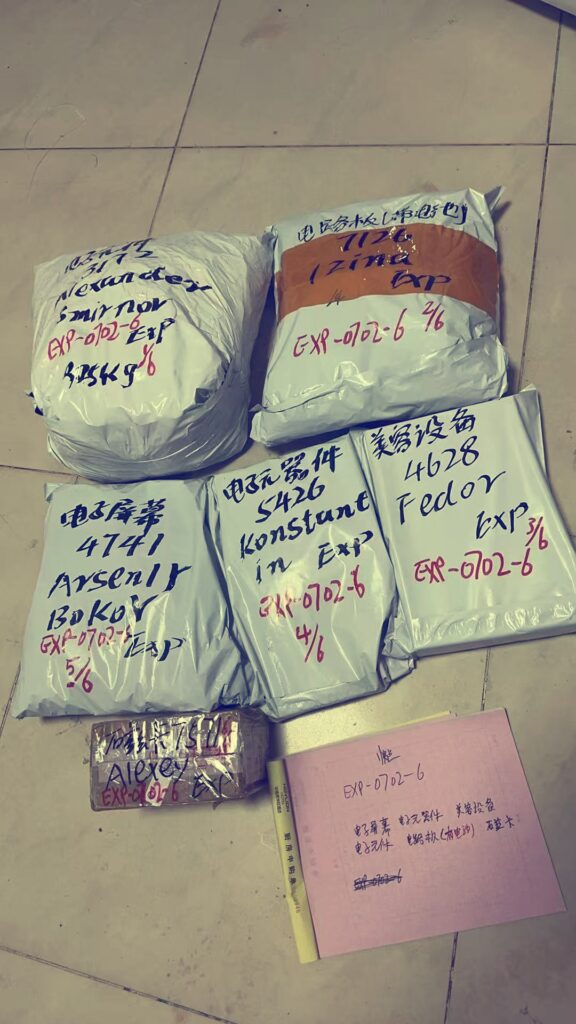 电子元件
3175
Alexander
Smirnov
EXP-0702-6 Exp
1/6
电路板(带电池)
7126
Izina
Exp
EXP-0702-6 2/6
美容设备
4628
Fedor
Exp 3/6
EXP-0702-6
电子屏幕
4741
Arseniy
Bokov
EXP-0702-6 Exp
5/6
电子元器件
5426
Konstant
in Exp
EXP-0702-6
4/6
Alexey
EXP-0702-6 Exp
EXP-0702-6
电子屏幕 电子元器件 美容设备
电子元件 电路板(有电池)